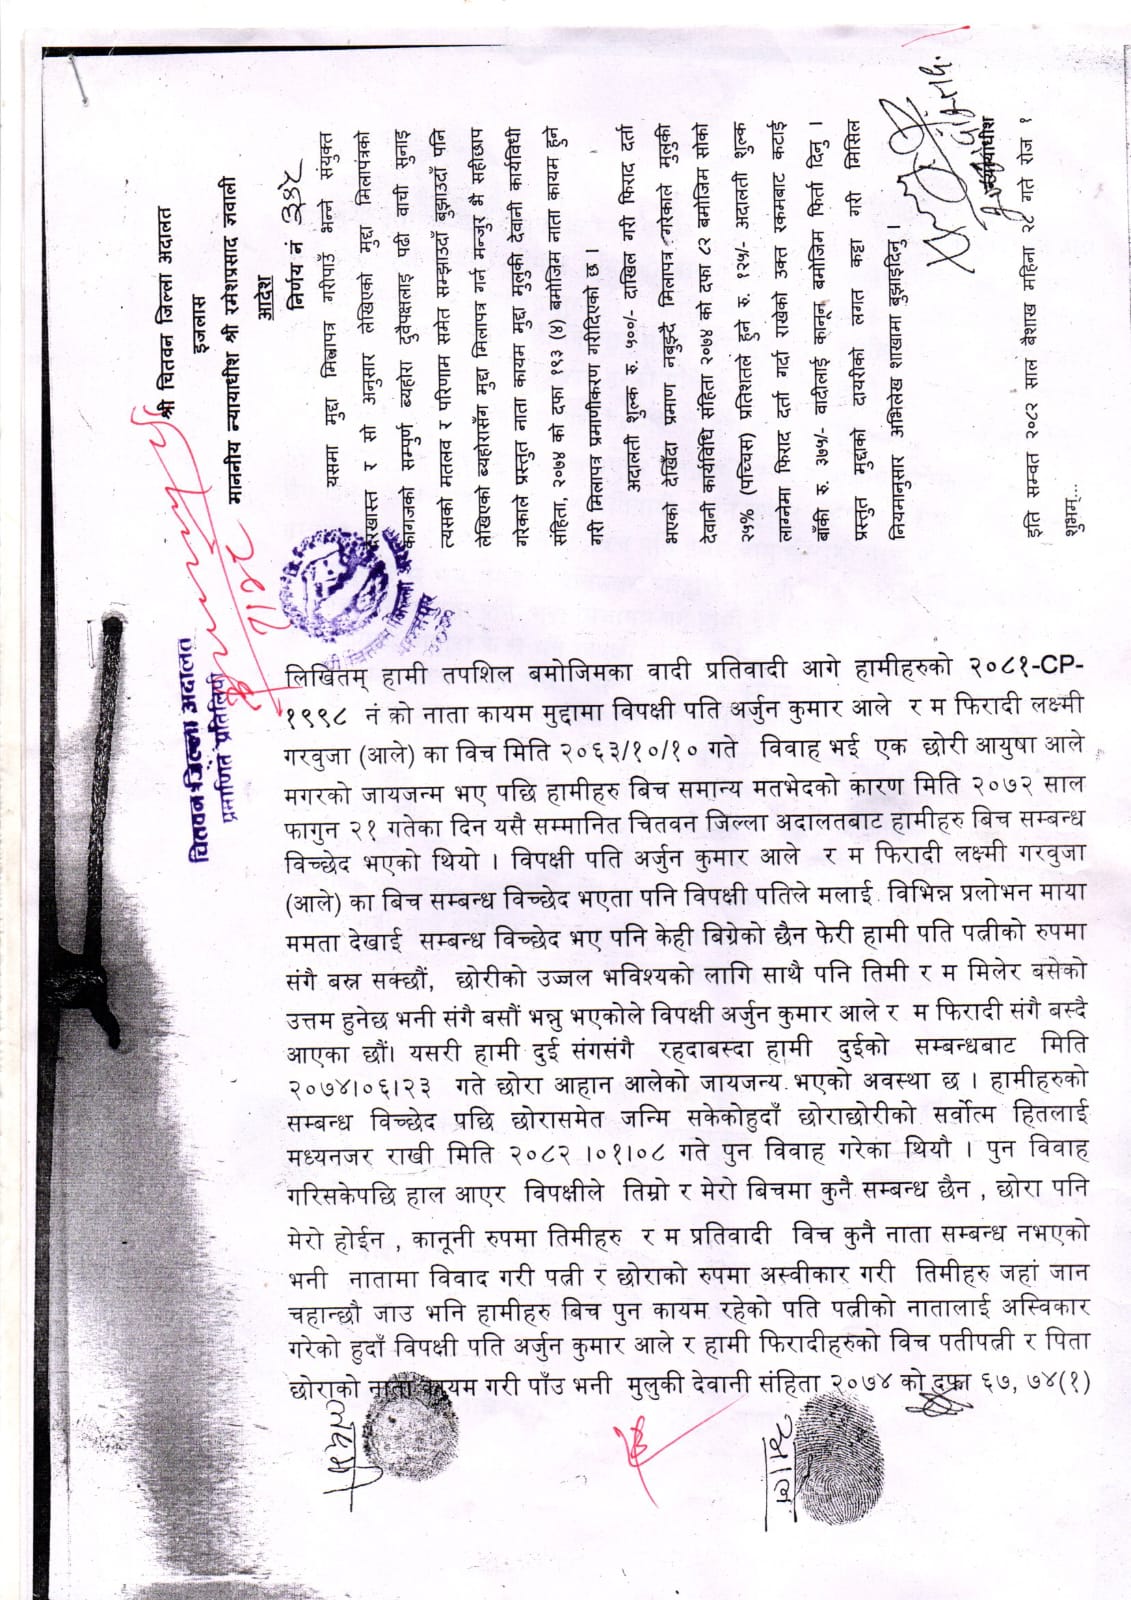 श्री चितवन जिल्ला अदालत
इजलास
माननीय न्यायाधीश श्री रमेशप्रसाद ज्ञवाली
आदेश
निर्णय नं ३४८
यसमा मुद्दा मिलापत्र गरीपाउँ भन्ने संयुक्त
दरखास्त र सो अनुसार लेखिएको मुद्दा मिलापत्रको
कागजको सम्पुर्ण ब्यहोरा दुवैपक्षलाइ पढी वाची सुनाइ
त्यसको मतलव र परिणाम समेत सम्झाउदाँ बुझाउदाँ पनि
लेखिएको ब्यहोरासँग मुद्दा मिलापत्र गर्न मन्जुर भै सहीछाप
गरेकाले प्रस्तुत नाता कायम मुद्दा मुलुकी देवानी कार्यविधी
संहिता, २०७४ को दफा १९३ (४) बमोजिम नाता कायम हुने
गरी मिलापत्र प्रमाणीकरण गरीदिएको छ ।
अदालती शुल्क रु. ५००/- दाखिल गरी फिराद दर्ता
भएको देखिँदा प्रमाण नबुझ्दै मिलापत्र गरेकाले मुलुकी
देवानी कार्यविधि संहिता २०७४ को दफा ८२ बमोजिम सोको
२५% (पच्चिस) प्रतिशतले हुने रु. १२५/- अदालती शुल्क
लाग्नेमा फिराद दर्ता गर्दा राखेको उक्त रकमबाट कटाई
बाँकी रु. ३७५/- वादीलाई कानून बमोजिम फिर्ता दिनु ।
प्रस्तुत मुद्दाको दायरीको लगत कट्टा गरी मिसिल
नियमानुसार अभिलेख शाखामा बुझाइदिनु ।
न्यायाधीश
इति सम्वत २०८२ साल बैशाख महिना २८ गते रोज १
शुभम्...
चितवन जिल्ला अदालत
प्रमाणित प्रतिलिपी
लिखितम् हामी तपशिल बमोजिमका वादी प्रतिवादी आगे हामीहरुको २०८१-CP-
१९९८ नं को नाता कायम मुद्दामा विपक्षी पति अर्जुन कुमार आले र म फिरादी लक्ष्मी
गरवुजा (आले) का विच मिति २०६३/१०/१० गते विवाह भई एक छोरी आयुषा आले
मगरको जायजन्म भए पछि हामीहरु बिच समान्य मतभेदको कारण मिति २०७२ साल
फागुन २१ गतेका दिन यसै सम्मानित चितवन जिल्ला अदालतबाट हामीहरु बिच सम्बन्ध
विच्छेद भएको थियो । विपक्षी पति अर्जुन कुमार आले र म फिरादी लक्ष्मी गरवुजा
(आले) का बिच सम्बन्ध विच्छेद भएता पनि विपक्षी पतिले मलाई विभिन्न प्रलोभन माया
ममता देखाई सम्बन्ध विच्छेद भए पनि केही बिग्रेको छैन फेरी हामी पति पत्नीको रुपमा
संगै बस्न सक्छौं, छोरीको उज्जल भविश्यको लागि साथै पनि तिमी र म मिलेर बसेको
उत्तम हुनेछ भनी संगै बसौं भन्नु भएकोले विपक्षी अर्जुन कुमार आले र म फिरादी संगै बस्दै
आएका छौं। यसरी हामी दुई संगसंगै रहदाबस्दा हामी दुईको सम्बन्धबाट मिति
२०७४।०६।२३ गते छोरा आहान आलेको जायजन्य भएको अवस्था छ । हामीहरुको
सम्बन्ध विच्छेद पछि छोरासमेत जन्मि सकेकोहुदाँ छोराछोरीको सर्वोत्म हितलाई
मध्यनजर राखी मिति २०८२ ।०१।०८ गते पुन विवाह गरेका थियौ । पुन विवाह
गरिसकेपछि हाल आएर विपक्षीले तिम्रो र मेरो बिचमा कुनै सम्बन्ध छैन , छोरा पनि
मेरो होईन , कानूनी रुपमा तिमीहरु र म प्रतिवादी विच कुनै नाता सम्बन्ध नभएको
भनी नातामा विवाद गरी पत्नी र छोराको रुपमा अस्वीकार गरी तिमीहरु जहां जान
चहान्छौ जाउ भनि हामीहरु बिच पुन कायम रहेको पति पत्नीको नातालाई अस्विकार
गरेको हुदाँ विपक्षी पति अर्जुन कुमार आले र हामी फिरादीहरुको विच पतीपत्नी र पिता
छोराको नाता कायम गरी पाँउ भनी मुलुकी देवानी संहिता २०७४ को दफा ६७, ७४(१)